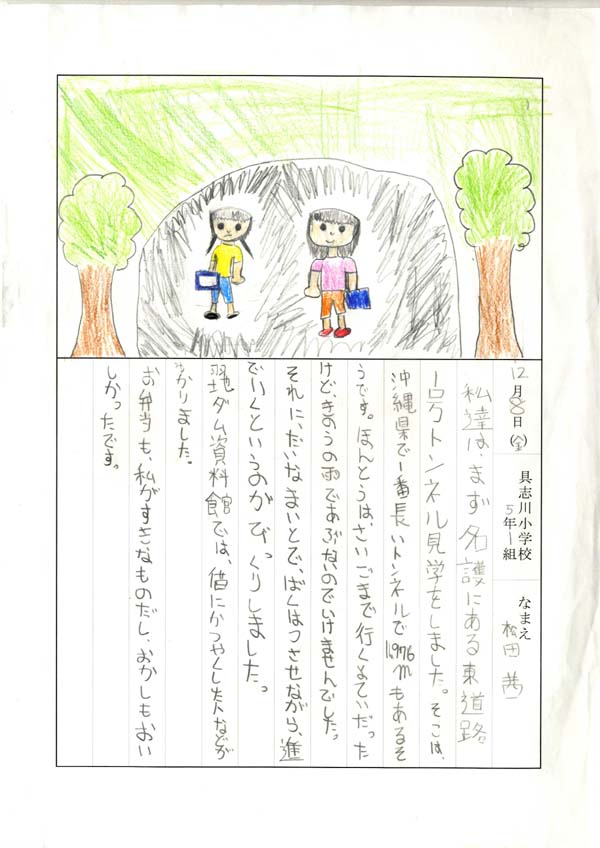 12月8日(金) 具志川小学校 5年1組 なまえ 松田 茜
私達は、まず名護にある東道路
一号トンネル見学をしました。そこは、
沖縄県で1番長いトンネルで1976mもあるそ
うです。ほんとうは、さいごまで行くよていだった
けど、きのうの雨であぶないのでいけませんでした。
それに、だいなまいとで、ばくはつさせながら、進
でいくというのがびっくりしました。
地ダム資料館では、昔にかつやくした人などが
わかりました。
お弁当も、私がすきなものだし、おかしもおい
しかったです。